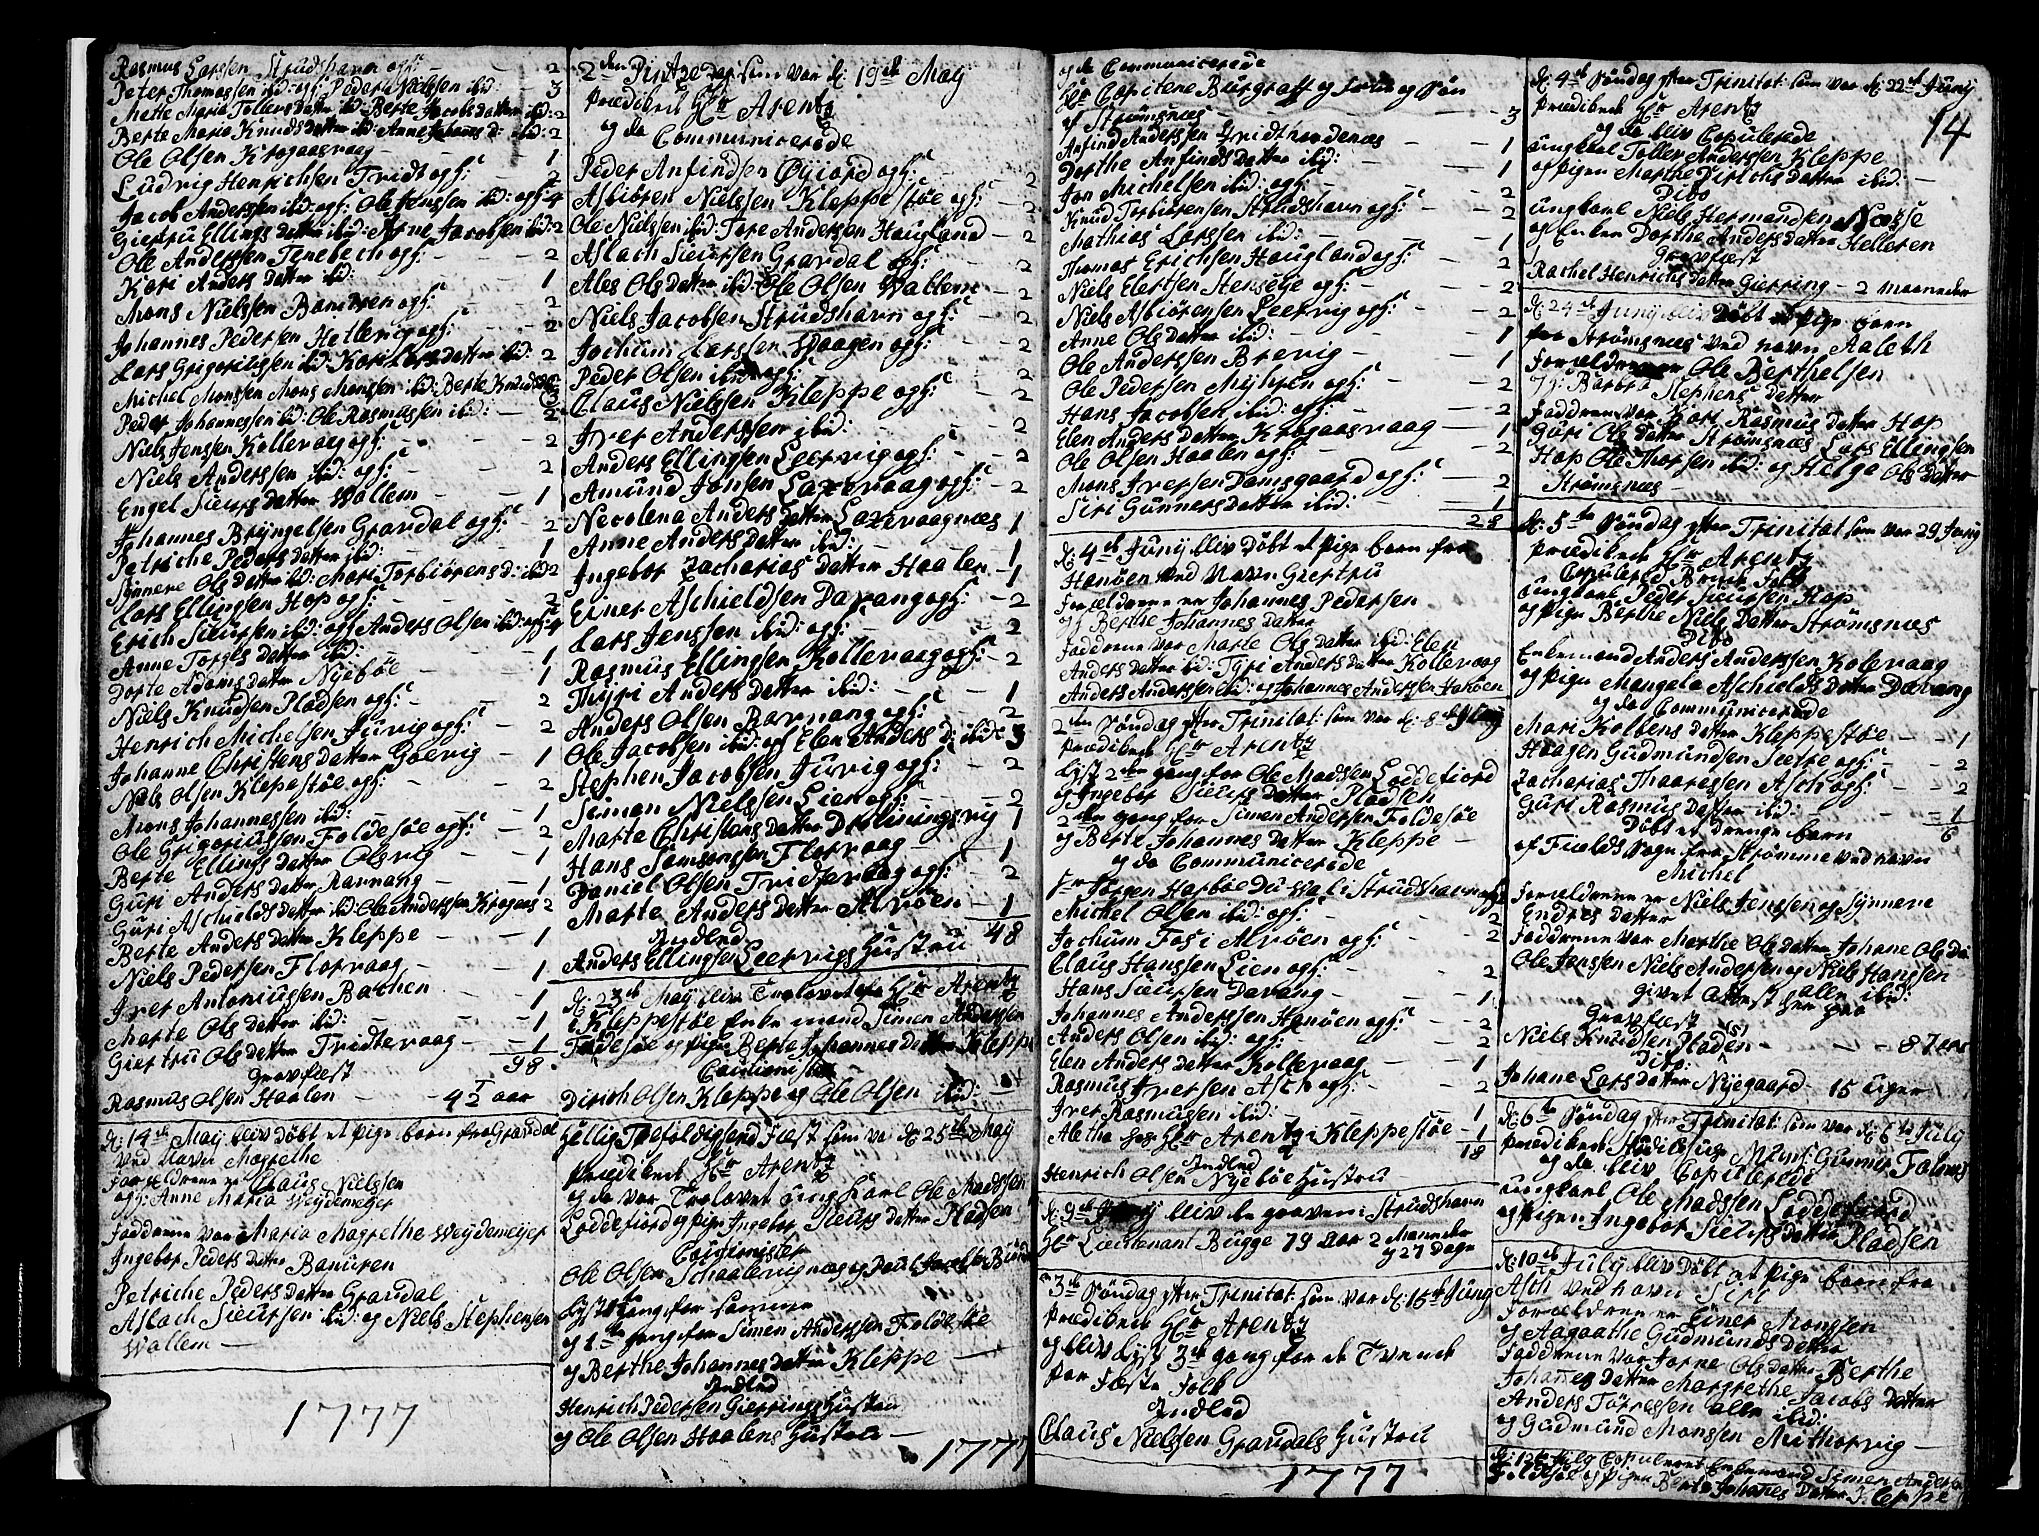 Rasmus Larssen Strudshavn og h: - - 2
Peter Thomassen ibid: og h: Peder Nielssen ibid: - 3
Matte Maria Tollens datter ibid: Berte Jacobs datter ibid: 2
Berte Marie Knuds datter ibid: Anne Johans d: ibid: 2
Ole Olsen Krogaasvaag - - 1
Ludvig Henrichsen Tridt og h: - 2
Jacob Anderssen ibid: og h: Ole Jenssen ibid: og h: 4
Giertru Ellings datter ibid: Arne Jacobsen ibid: 2
Ole Anderssen Tenebech og h: - - 2
Kari Anders datter ibid: - - 1
Mons Nielssen Banursen og h: - - 2
Johannes Pedersen Hellevig og h: - 2
Lars Grigoriussen ibid: Kari Lars datter ibid: 2
Michel Monssen Mons Monsen ibid: Berte Knuds 3
Peder Johannessen ibid: Ole Rasmussen ibid: - 2
Niels Jenssen Kollevaag og h: - - 2
Niels Anderssen ibid: og h: - - 2
Engel Siurs datter Wallem - - 1
Johannes Bryngelsen Gravdal og h: - 2
Petriche Peders datter ibid: - - 1
Synneve Ols datter ibid: Mari Torbiørens d: ibid: 2
Lars Ellingsen Hop og h: - - 2
Erich Siursen ibid: og h: Anders Olsen ibid: og h: 4
Anne Torges datter ibid: - - 1
Dorte Adams datter Nyebøe - - 1
Niels Knudsen Pladsen og h: - - 2
Henrich Michelsen Juvig og h: - 2
Johanne Christens datter Goevig - 1
Niels Olsen Klepestøe og h: - - 2
Mons Johannessen ibid: - - 1
Ole Grigoriussen Foldesøe og h: - 2
Berte Ellings datter Olsvig - - 1
Guri Anders datter Ravnang - - 1
Guri Aschields datter ibid: Ole Anderssen Krogens 2
Berte Anders datter Kleppe - - 1
Niels Pedersen Florvaag - - 1
Iver Antoniussen Bachen - - 1
Marte Ols datter ibid: - - 1
Giertru Ols datter Tridtevaag - - 1
98
Gravfæst
Rasmus Olsen Haalen - - 4 1/2 aar
d: 14de May blev Døbt et Pige barn fra Gravdal
Ved Navn Magrethe
Forældrene er Claus Nielssen
og h: Anne Maria Weydemeyer
Faddrene var Maria Magrethe Weydemeyer
Ingebor Peders datter Banuren
Petriche Peders datter Gravdal
Aslach Siursen ibid: og Niels Stephensen
Wallem -
1777
2den Pintze dag som var d: 19de May
Prædiket Hr Arentz
og da Communicerede
Peder Anfindsen Øyjord og h: - 2
Asbiøren Nielssen Kleppestøe og h: - 2
Ole Nielssen ibid: Tore Andersen Haugland - 2
Aslach Siursen Gravdal og h: - 2
Ales Ols datter ibid: Ole Olsen Wallem - 2
Niels Jacobsen Strudshavn og h: - 2
Jochum Larssen Spaagen og h: - 2
Peder Olsen ibid: og h: - - 2
Claus Nielssen Kleppe og h: - 2
Iver Anderssen ibid: - - 2
Anders Ellingsen Leervig og h: - 2
Amund Jonsen Laxevaag og h: - 2
Necolena Anders datter Laxevaagnæs 1
Anne Anders datter ibid: - 1
Ingebor Zacharias datter Haalen - 1
Einer Aschieldsen Davang og h: - 2
Lars Jenssen ibid: og h: - - 2
Rasmus Ellingsen Kollevaag og h: - 2
Thyri Anders datter ibid: - - 1
Anders Olsen Ravnang og h: - 2
Ole Jacobsen ibid: og Elen Anders d: ibid: 3
Stephen Jacobsen Juvig og h: - 2
Simon Nielssen Lien og h: - - 2
Marte Christens datter Drotningsvig 1
Hans Samsonssen Florvaag - 1
Daniel Olsen Tridsevaag og h: - 2
Marte Anders datter Alvøen - 1
48
Indled
Anders Ellingsen Leervigs Hustru
d: 23de May blev Trolovet af Hr Arentz
i Kleppestøe Enkemand Simen Andersen
Foldesøe og Pige Berte Johannes datter Kleppe
Cautionister
Dirich Olsen Kleppe og Ole Olsen ibid: -
Hellig Trefoldigheds Fæst som var d: 25de May
Prædiket Hr Arentz
og da var Trolovet ung Karl Ole Madssen
Loddefiord og Pige Ingebor Siurs datter Pladsen
Cautionister
Ole Olsen Schaalevignæs og Poul
Lyst 1te gang for samme
og 1te gang for Simen Anderssen Foldesøe
og Berthe Johannes datter Kleppe -
Indled
Henrich Pedersen Gierrings Hustru
og Ole Olsen Haalens Hustru -
1777
og da Communicerede
Hr Capitene Burgraff og frue og Søn
af Strømsnæs - - 3
Anfind Anderssen Tridthordenæs - - 1
Dorthe Anfinds datter ibid: - - 1
Jon Michelsen ibid: og h: - - 2
Knud Torbiørensen Strudshavn og h: - 2
Mathias Larssen ibid: - - 1
Thomas Erichsen Haugland og h: - 2
Niels Elertsen Stensetge og h: - - 2
Niels Asbiørensen Leervig og h: - 2
Anne Ols datter ibid: - - 1
Ole Anderssen Brevig - - 1
Ole Pedersen Myhren og h: - - 2
Hans Jacobsen ibid: og h: - - 2
Elen Anders datter Krogaasvaag - 1
Ole Olsen Haalen og h: - - 2
Mons Iversen Damsgaard og h: - 2
Siri Gunners datter ibid: - - 1
28
d: 4de Juny blev Døbt et Pige barn fra
Hanøen ved Navn Giertru
Forældrene er Johannes Pedersen
og Berthe Johannes datter
Faddrene var Marte Ols datter ibid: Elen
Anders datter ibid: Tyri Anders datter Kollevaag
Anders Anderssen ibid: og Johannes Anderssen Hanøen
2den Søndag efter Trinitat: som var d: 8de Juny
Prædiket Hr Arentz
Lyst 2den gang for Ole Madsen Loddefiord
og Ingebor Siurs datter Pladsen
2den gang for Simen Andersen Foldesøe
og Berte Johannes datter Kleppe -
og da Communicerede
Jørgen Harbøe Duwal i Strudshavn
Michel Olsen ibid: og h: - - 2
Jochum Fos i Alvøen og h: - - 2
Claus Hanssen Lien og h: - - 2
Hans Siursen Davang - - 1
Johannes Anderssen Hanøen og h: - 2
Anders Olsen ibid: og h: - - 2
Elen Anders datter Kollevaag - - 1
Rasmus Iversen Asch og h: - - 2
Iver Rasmussen ibid: - - 1
Aletha hos Hr Arentz i Kleppestøe - 1
18
Indled
Henrich Olsen Nyebøe Hustru
d: 9de Juny blev begraven i Strudshavn
Hr Lieutenant Bugge 79 Aar 2 Maaneder
og 27 Dage
3de Søndag efter Trinitat: som var d: 15de Juny
Prædiket Hr Arentz
og blev Lyst 3de gang for de Tvende
Par Fæste Folk
Indled
Claus Nielssen Gravdals Hustru
1777
d: 4de Søndag efter Trinitat: som var d: 22de Juny
Prædiket Hr Arentz
14
og da blev Copulerede
ungkarl Tollev Anderssen Kleppe
og Pigen Marthe Dirichs datter ibid: -
Dito
ungkarl Niels Hermandsen Næsse
og Enken Dorthe Anders datter Helleren
Gravfæst
Rachel Henrichs datter Gierring - 2 maaneder
d: 24de Juny blev Døbt et Pige barn
fra Strømsnæs ved navn Aaleth
Forældrene Ole Berthelsen
og Barbra Stephens datter
Faddrene var Kari Rasmus datter Hop
Guri Ols datter Strømsnæs Lars Ellingsen
Hop Ole Thorsen ibid: og Helga Ols datter
Strømsnæs
d: 5te Søndag efter Trinitat som var 29 Juny
Prædiket Hr Arentz
Copulered Brude Folk
ungkarl Peder Siursen Hop
og Pige Berthe Niels datter Strømsnæs
Dito
Enkemand Anders Anderssen Kolevaag
og Pigen Mangela Aschields datter Davang
og da Communicerede
Mari Kolbens datter Kleppestøe - - 1
Haagen Gudmundsen Sætre og h: - 2
Zacharias Thaaressen Asch og h: - - 2
Guri Rasmus datter ibid: - - 1
6
Døbt et Drenge barn
af Fields Sogn fra Strømme ved navn
Michel
Forældrene er Niels Jenssen og Synneve
Endres datter
Faddrene var Marthe Ols datter Johane Ols d:
Ole Jenssen Niels Andersen og Niels Hanssen
alle ibid:
givet Attest her paa
Gravfæst
Niels Knudsen Pladen(s) - - - 87 aar
Dito
Johane Lars datter Nyegaard - 15 Uger
d: 6te Søndag efter Trinitat: som var d: 6te July
Prædiket Studiosus Mons: Gunner Falmes
og da blev Copulerede
ungkarl Ole Madssen Loddefiord
og Pigen Ingebor Siurs datter Pladsen
d: 10de July blev Døbt et Pige barn fra
Asch ved navn Siri
Forældrene er Einer Monssen
og Aagaathe Gudmunds datter
Faddrene var Jorne Ols datter Berthe
Johannes datter Margrethe Jacobs datter
Anders Tørressen alle ibid:
og Gudmund Monssen Mithorvig -
d: 12te July Copuleret Enkemand Simen Andersen
Foldesøe og Pigen Berte Johanes datter Kleppe